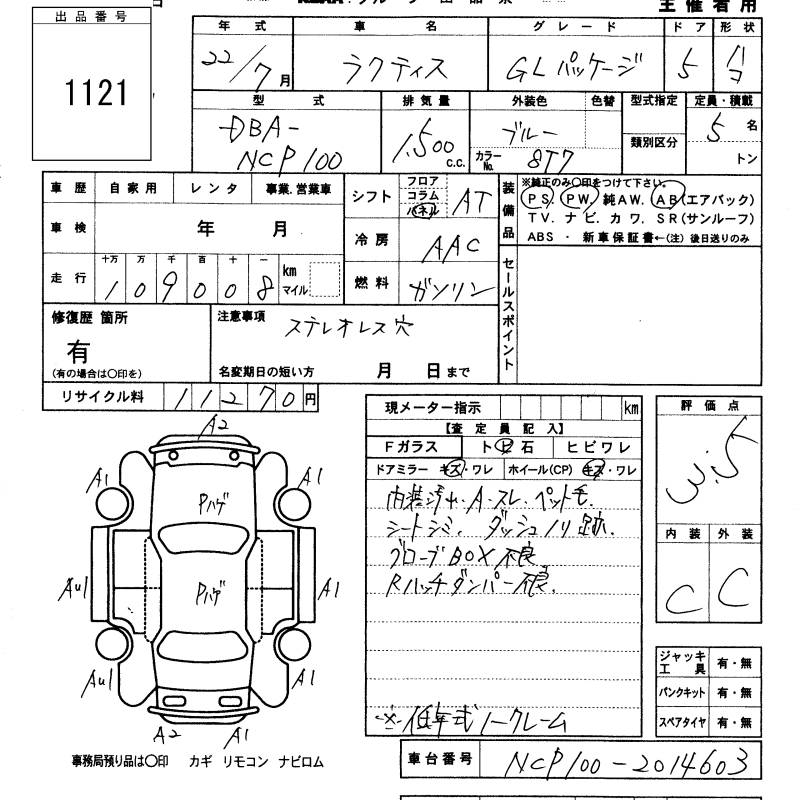 出品番号
1121
主催者用
年式 車名 グレード ドア 形状
22/7月 ラクティス GLパッケージ 5
型式 排気量 外装色 色替 型式指定 定員・積載
DBA-
NCP100 1,500 c.c. ブルー 5名
カラーNo. 8T7 類別区分 トン
車歴 自家用 レンタ 事業.営業車
シフト フロア コラム パネル AT
装備品 ※純正のみ○印をつけて下さい。
PS. PW. 純AW. AB(エアバック)
TV. ナビ. カワ. SR(サンルーフ)
ABS ・ 新車保証書←(注) 後日送りのみ
車検 年 月
冷房 AAC
走行 十万 万 千 百 十 一 km マイル
109008
燃料 ガソリン
セールスポイント
修復歴 箇所
有
(有の場合は○印を)
注意事項
ステレオレス穴
名変期日の短い方 月 日まで
リサイクル料 11270円
現メーター指示 km
【査定員記入】
Fガラス ト ビ 石 ヒビワレ
ドアミラー キズ・ワレ ホイール(CP) キズ・ワレ
内装汚れ.A.スレ.ペット毛.
シートシミ. ダッシュノリ跡.
グローブBOX不良.
Rハッチダンパー不良.
※低年式ノークレーム
評価点
3.5
内装 外装
C C
ジャッキ工具 有・無
パンクキット 有・無
スペアタイヤ 有・無
A2
A1 A1
Pハゲ
AU1 Pハゲ A1
AU1 A1
A2 A1
事務局預り品は○印 カギ リモコン ナビロム
車台番号 NCP100-2014603